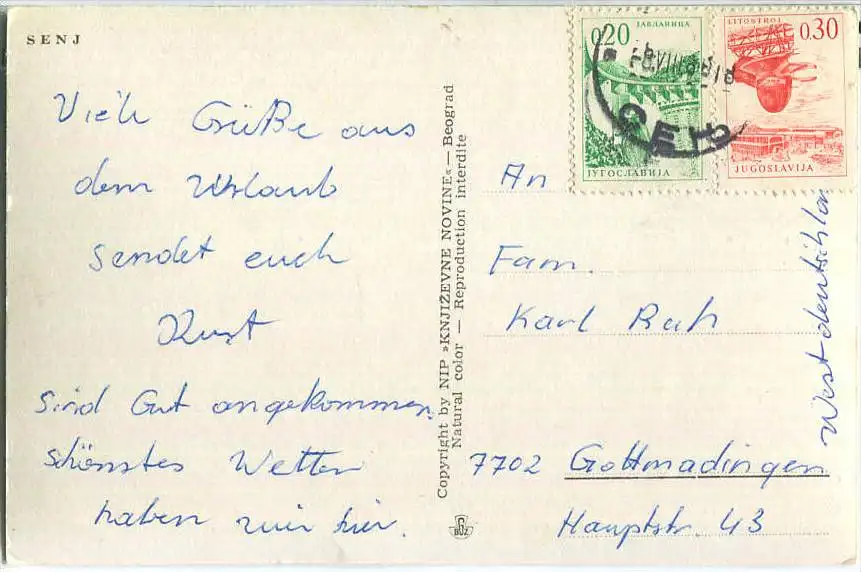 SENJ
Viele Grüße aus
dem Urlaub
sendet euch
Kurt
sind Gut angekommen.
schönstes Wetter
haben wir hier.
Copyright by NIP »KNJIŽEVNE NOVINE« — Beograd
Natural color — Reproduction interdite
0,20 ЈАБЛАНИЦА
ЈУГОСЛАВИЈА
LITOSTROJ 0,30
JUGOSLAVIJA
An
Fam.
Karl
7702 Gottmadingen
Hauptstr. 43
Westdeutschlan